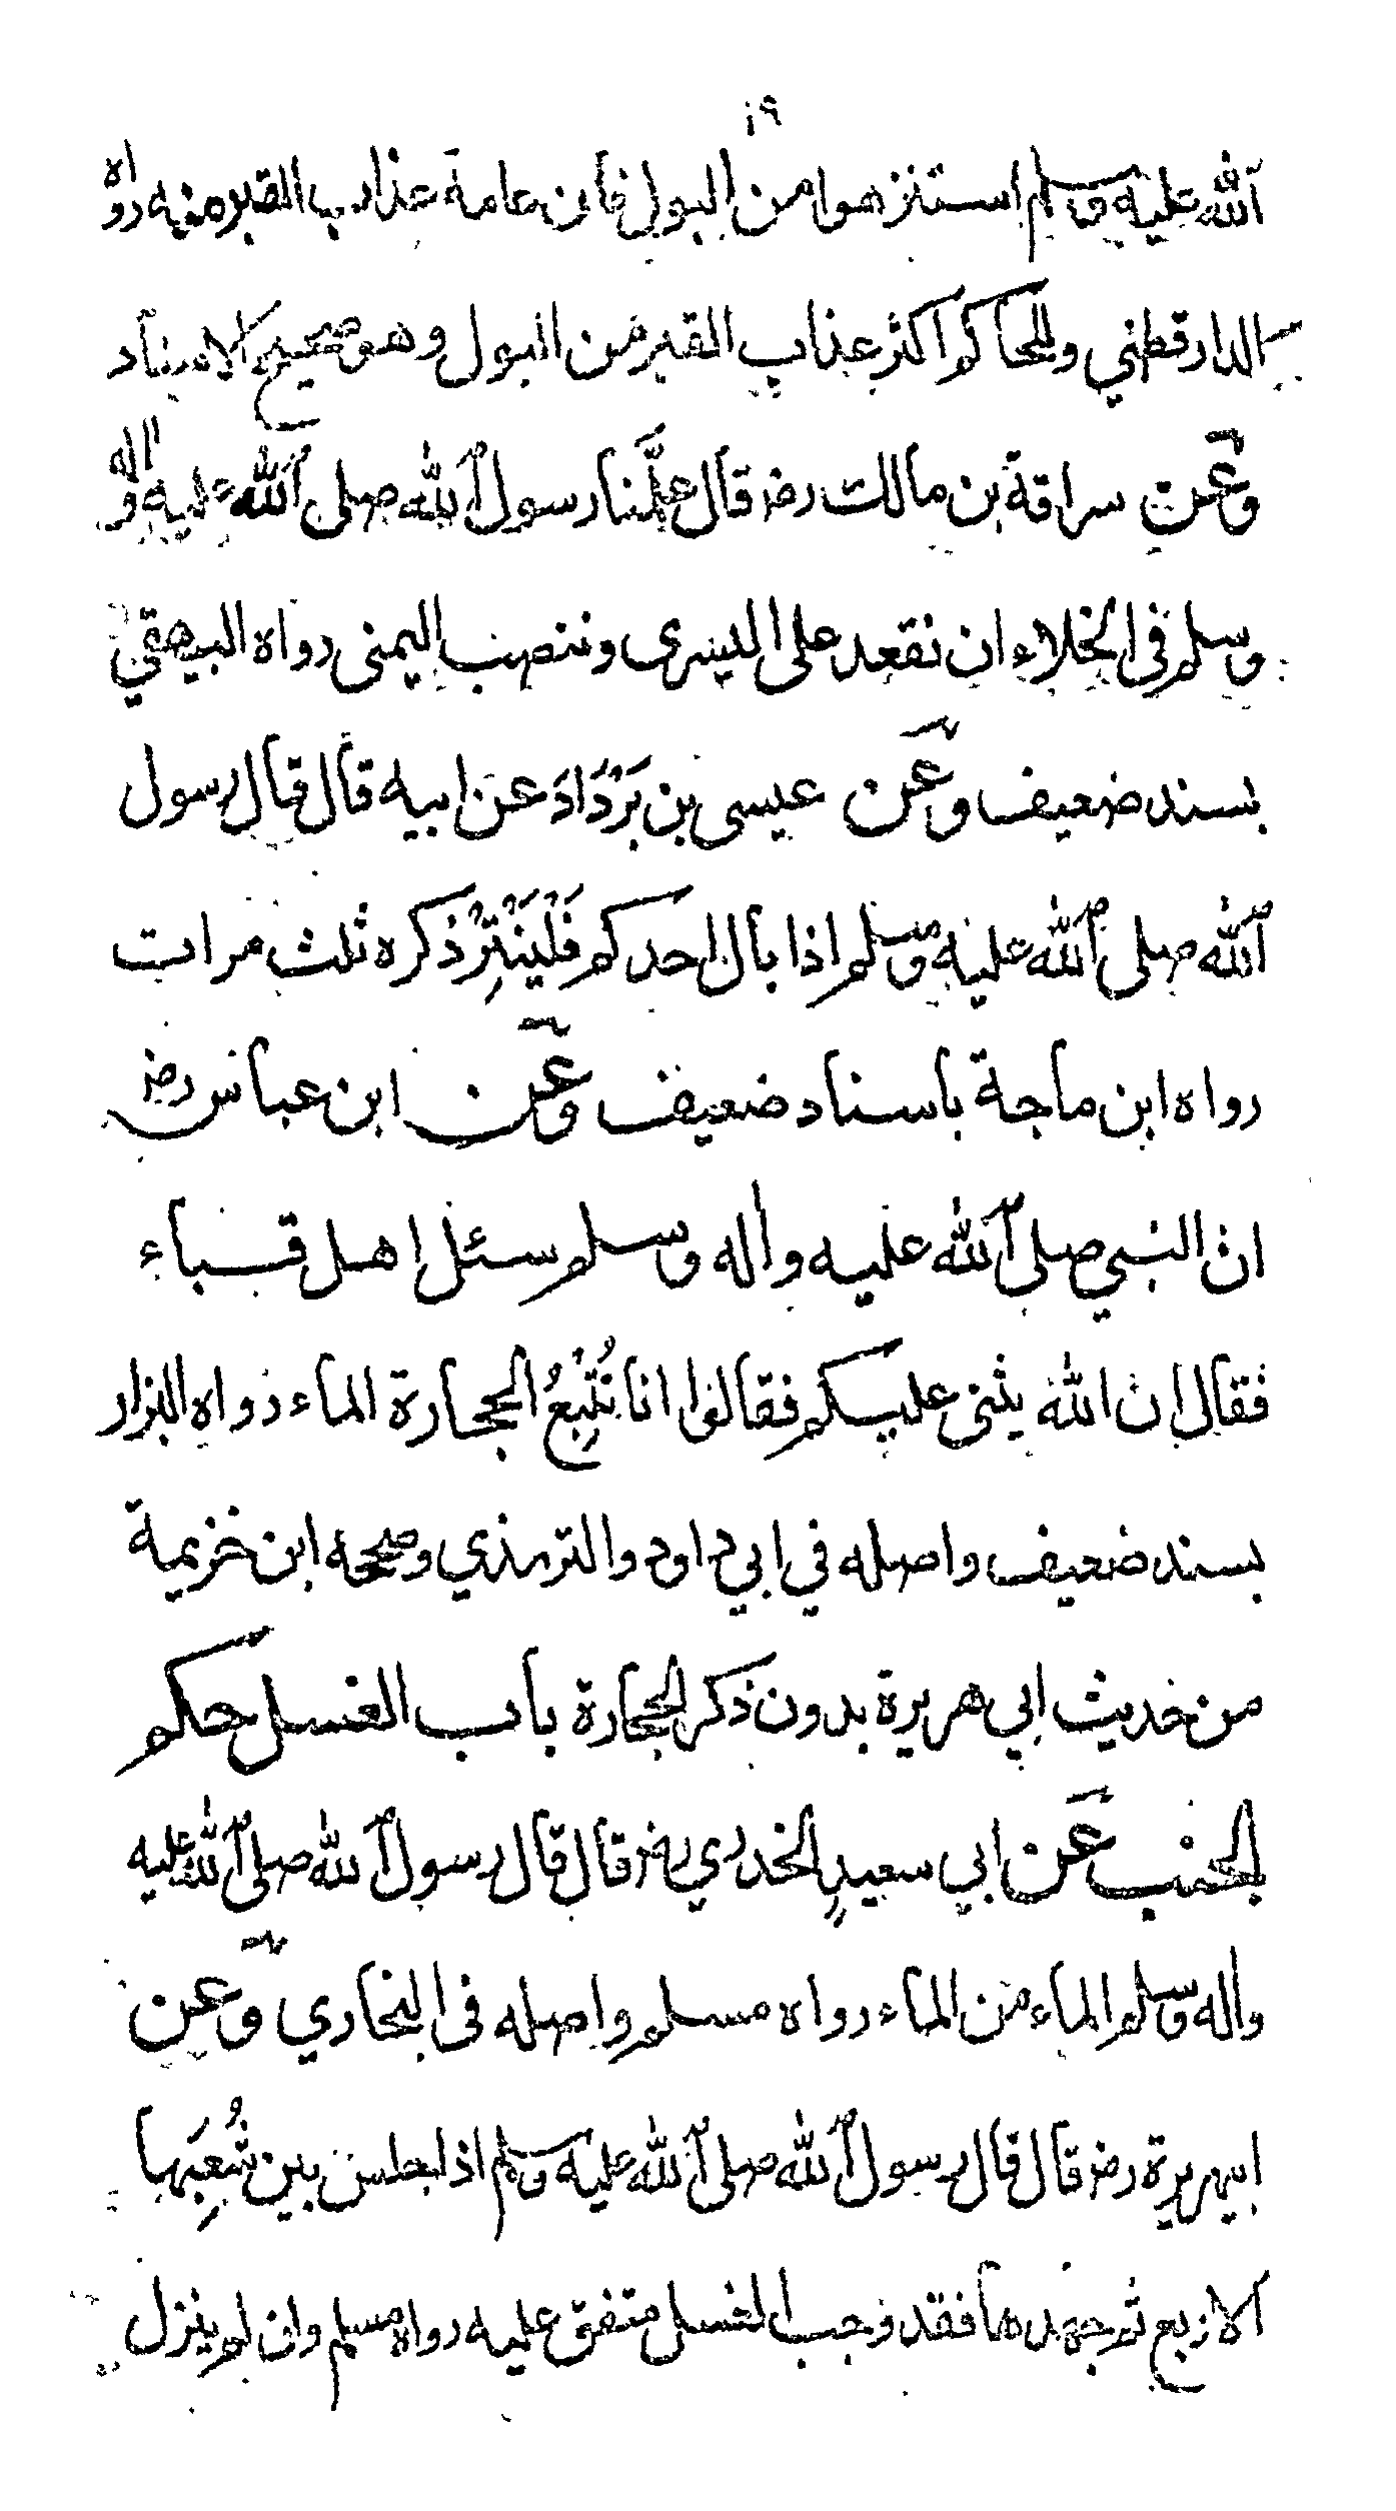 ١٩
الله عليه وسلم استنزهوا من البول فان عامة عذاب القبر منه رواه
الدارقطني وللحاكم اكثر عذاب القبر من البول وهو صحيح الاسناد
وعن سراقة بن مالك رضـ قال علَّمنا رسول الله صلى الله عليه واله
وسلم في الخلاء ان نقعد على اليسرى وننصب اليمنى رواه البيهقي
بسند ضعيف وعن عيسى بن بَرْدَادَ عن ابيه قال قال رسول
الله صلى الله عليه وسلم اذا بال احدكم فَلْيَنْتِرْ ذكره ثلث مرات
رواه ابن ماجة باسناد ضعيف وعن ابن عباس رضـ
ان النبي صلى الله عليه واله وسلم سئل اهل قباء
فقال ان الله يثنى عليكم فقالوا انا نُتْبِعُ الحجارة الماء رواه البزار
بسند ضعيف واصله في ابي داود والترمذي وصححه ابن خزيمة
من حديث ابي هريرة بدون ذكر الحجارة باب الغسل حكم
الجنب عن ابي سعيدٍ الخدري رضـ قال قال رسول الله صلى الله عليه
واله وسلم الماء من الماء رواه مسلم واصله في البخاري وعن
ابيهريرة رضـ قال قال رسول الله صلى الله عليه وسلم اذا جلس بين شُعَبِها
الاربع ثم جهدها فقد وجب الغسل متفق عليه رواه مسلم وان لم ينزل